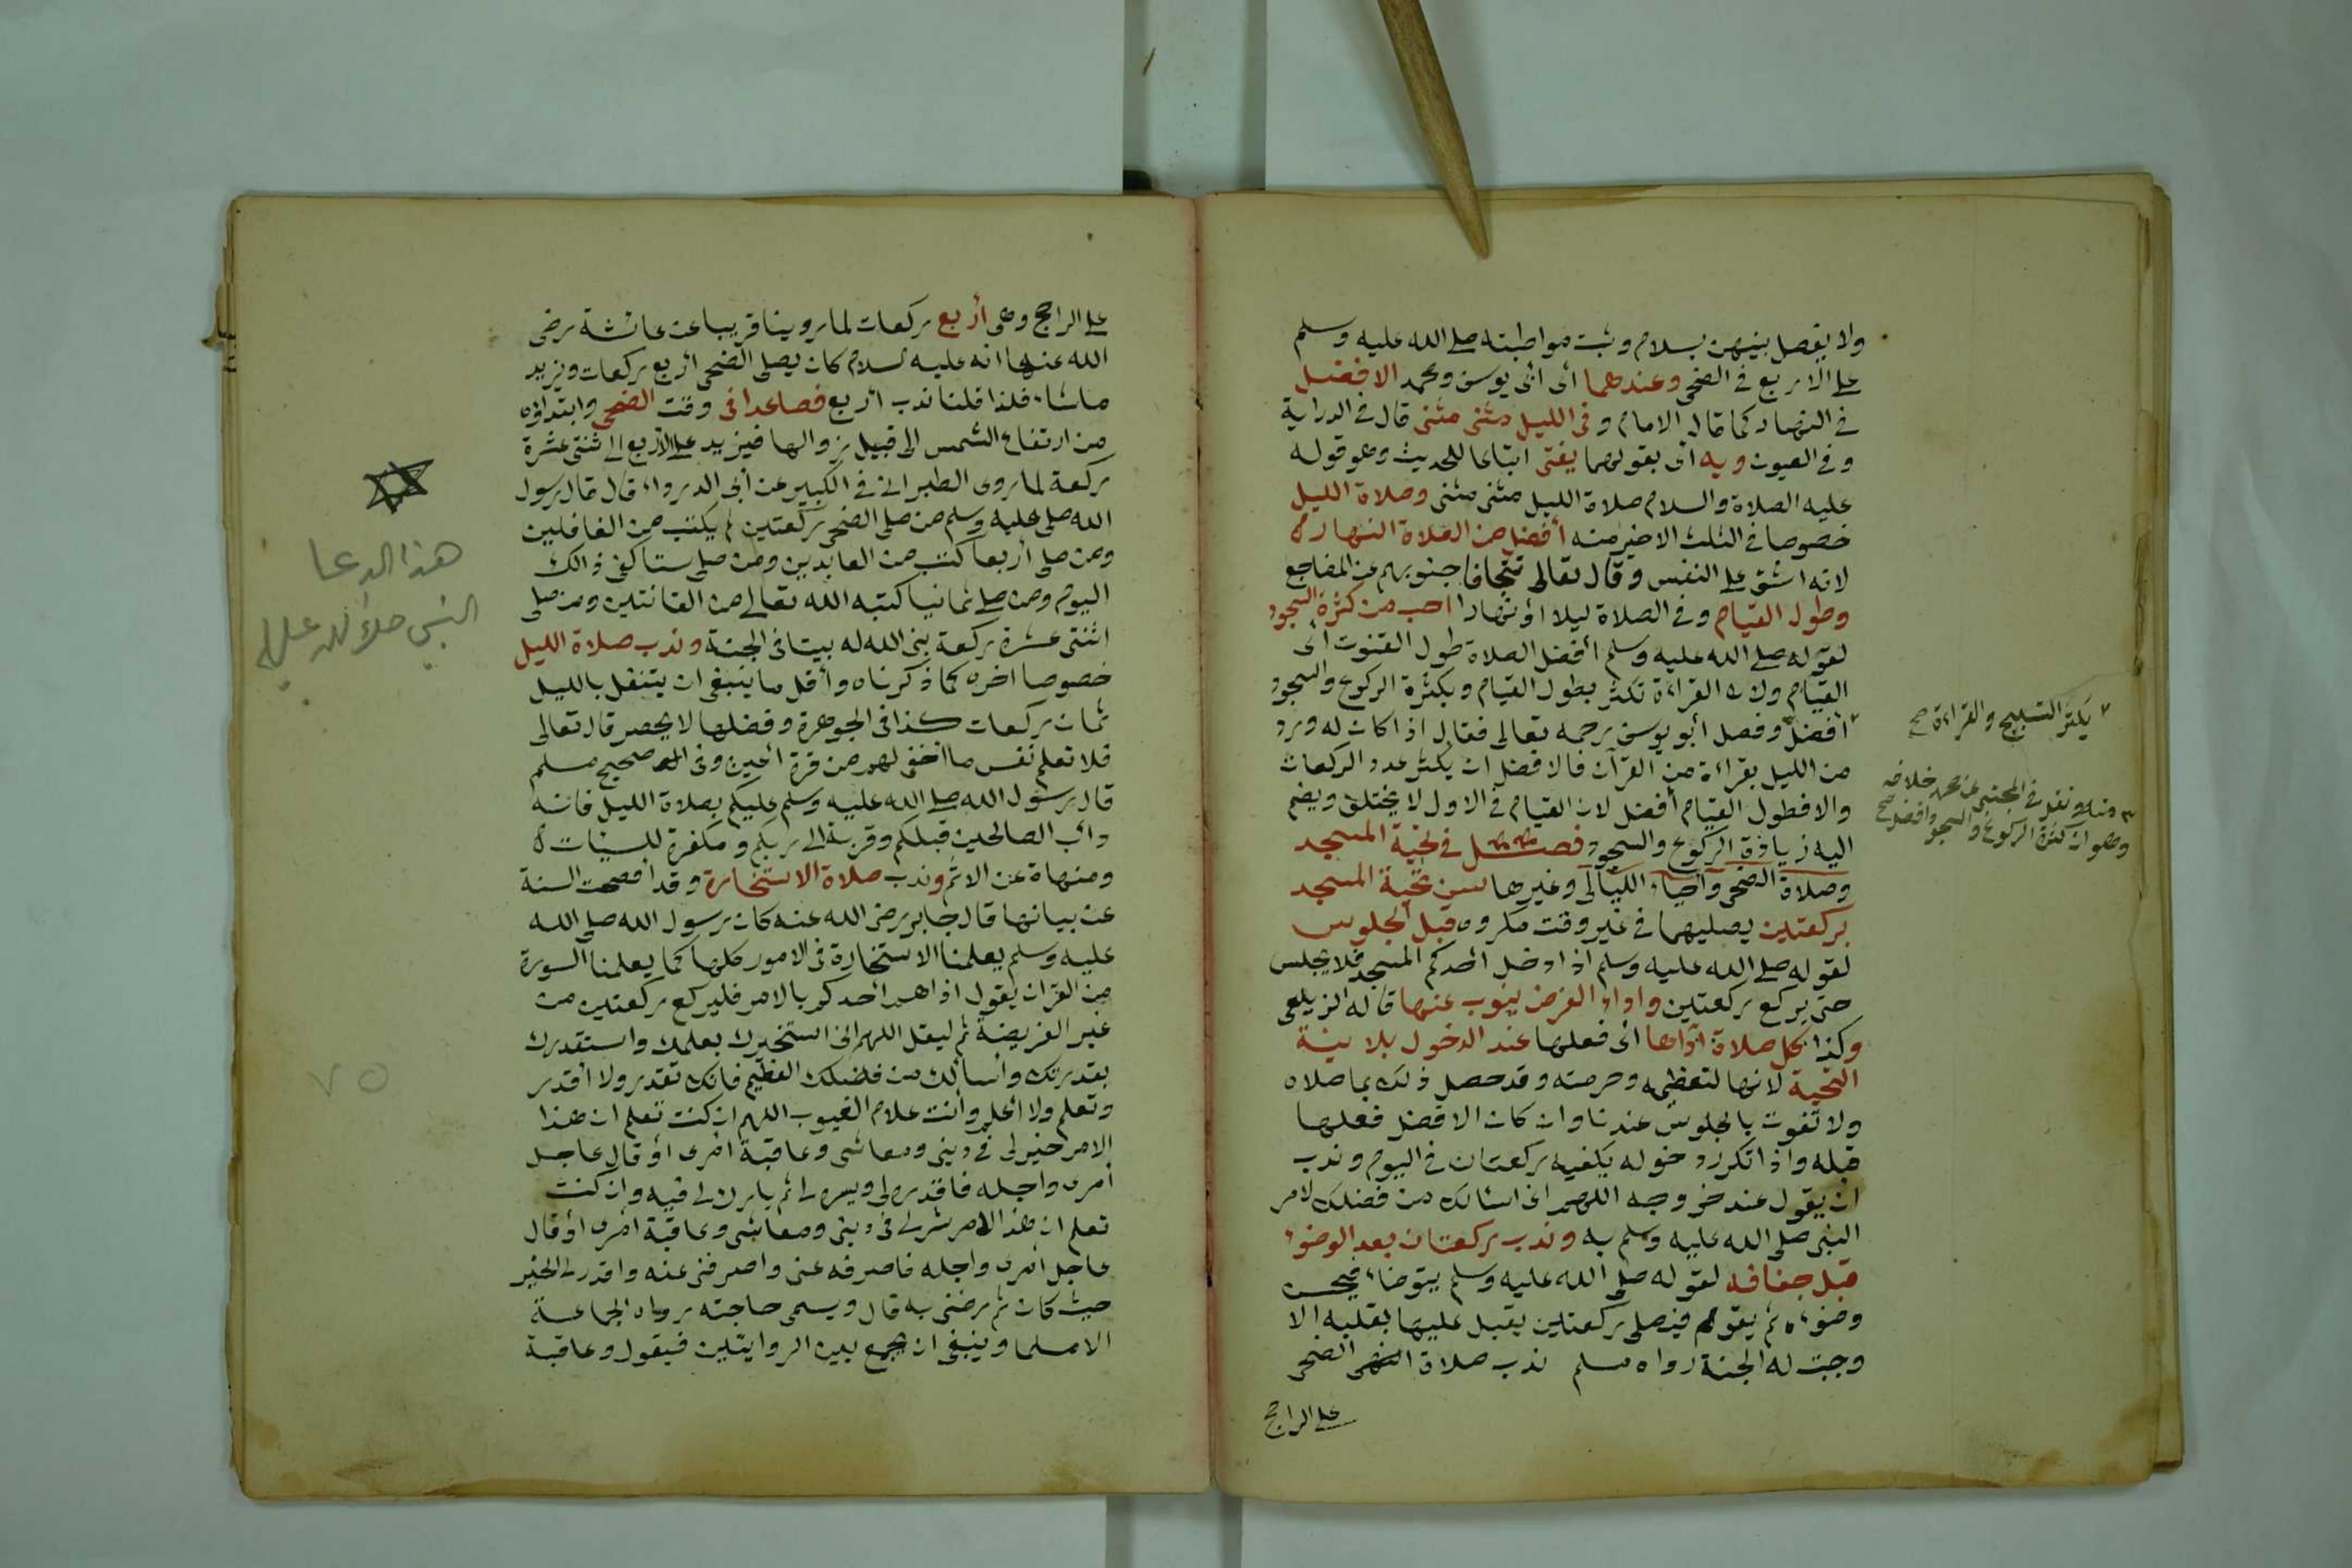 ولا يفصل بينهن بسلام وثبت مواظبته صلى الله عليه وسلم
على الاربع في الضحى وعندهما أى أبى يوسف ومحمد الافضل
في النهار كما قال الامام وفى الليل مثنى مثنى قال في الدراية
وفي العيون وبه أى بقولهما يفتى اتباعا للحديث وهو قوله
عليه الصلاة والسلام صلاة الليل مثنى مثنى وصلاة الليل
خصوصا في الثلث الاخير منه أفضل من الصلاة النهار
لانه اشق على النفس وقال تعالى تتجافا جنوبهم عن المضاجع
وطول القيام وفي الصلاة ليلا أو نهارا احب من كثرة السجود
لقوله صلى الله عليه وسلم أفضل الصلاة طول القنوت أى
القيام ولان القراءة تكثر بطول القيام وبكثرة الركوع والسجود
يكثر التسبيح والقراءة صح
أفضل وفصل أبو يوسف رحمه تعالى فقال اذا كان له ورد
من الليل بقراءة من القرآن فالافضل ان يكثر عدد الركعات
ونقل في المجتبى عن محمد خلافه
وهو ان كثرة الركوع والسجود افضل صح
والا فطول القيام أفضل لان القيام في الاول لا يختلف ويضم
اليه زيادة الركوع والسجود فصل في تحية المسجد
وصلاة الضحى وأحياء الليالى وغيرها سن تحية المسجد
بركعتين يصليهما في غير وقت مكروه قبل الجلوس
لقوله صلى الله عليه وسلم اذا دخل أحدكم المسجد فلا يجلس
حتى يركع ركعتين واداء الفرض ينوب عنها قاله الزيلعى
وكذا كل صلاة أداها أى فعلها عند الدخول بلا نية
التحية لانها لتعظيمه وحرمته وقد حصل ذلك بما صلاه
ولا تفوت بالجلوس عندنا وان كان الافضل فعلها
قبله واذا تكرر دخوله يكفيه ركعتان في اليوم وندب
ان يقول عند خروجه اللهم انى اسئالك من فضلك لامر
النبى صلى الله عليه وسلم به وندب ركعتان بعد الوضوء
قبل جفافه لقوله صلى الله عليه وسلم يتوضاء فيحسن
وضوءه ثم يقوم فيصلى ركعتين يقبل عليها بقلبه الا
وجبت له الجنة رواه مسلم ندب صلاة الضحى
على الراجح
على الراجح وهى أربع ركعات لما روينا قريبا عن عائشة رضى
الله عنها انه عليه السلام كان يصلى الضحى أربع ركعات ويزيد
ماشاء فلذا قلنا ندب أربع فصاعدا في وقت الضحى وابتداؤه
من ارتفاع الشمس الى قبيل زوالها فيزيد على الأربع الى ثنتى عشرة
ركعة لما روى الطبرانى في الكبير عن أبى الدرداء قال قال رسول
الله صلى عليه وسلم من صلى الضحى ركعتين لم يكتب من الغافلين
ومن صلى أربعا كتب من العابدين ومن صلى ستا كفى ذالك
اليوم ومن صلى ثمانيا كتبه الله تعالى من القانتين ومن صلى
اثنتى عشرة ركعة بنى الله له بيتا في الجنة وندب صلاة الليل
خصوصا اخره كما ذكرناه وأقل ما ينبغى ان يتنفل بالليل
ثمان ركعات كذا في الجوهرة وفضلها لا يحصر قال تعالى
فلا تعلم نفس ما أخفى لهم من قرة أعين وفى صحيح مسلم
قال رسول الله صلى الله عليه وسلم عليكم بصلاة الليل فانه
دأب الصالحين قبلكم وقربة الى ربكم ومكفرة للسيئات
ومنهاة عن الاثم وندب صلاة الاستخارة وقد أفصحت السنة
عن بيانها قال جابر رضى الله عنه كان رسول الله صلى الله
عليه وسلم يعلمنا الاستخارة في الامور كلها كما يعلمنا السورة
من القرآن يقول اذا هم أحدكم بالامر فليركع ركعتين من
غير الفريضة ثم ليقل اللهم انى استخيرك بعلمك واستقدرك
بقدرتك وأسألك من فضلك العظيم فانك تقدر ولا أقدر
وتعلم ولا أعلم وأنت علام الغيوب اللهم ان كنت تعلم ان هذا
الامر خير لى في دينى ومعاشى وعاقبة أمرى أو قال عاجل
أمرى واجله فاقدره لى ويسره لى ثم بارك لى فيه وان كنت
تعلم ان هذا الامر شر لى في دينى ومعاشى وعاقبة أمرى أو قال
عاجل أمرى واجله فاصرفه عنى واصرفنى عنه واقدر لى الخير
حيث كان ثم رضنى به قال ويسمى حاجته رواه الجماعة
الا مسلما وينبغى ان يجمع بين الروايتين فيقول وعاقبة
هذا الدعا
النبي
٧٥